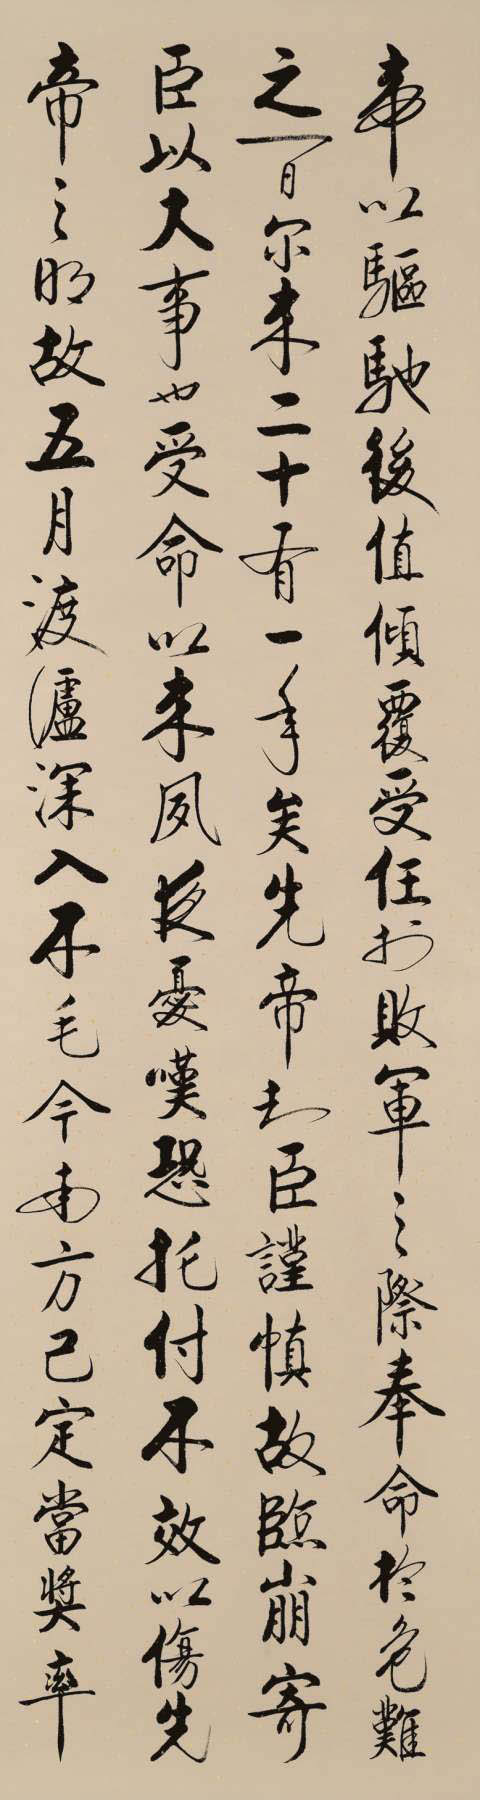 帝以驅馳後值傾覆受任於敗軍之際奉命於危難
之間尔来二十有一年矣先帝知臣謹慎故臨崩寄
臣以大事也受命以来夙夜憂嘆恐托付不效以傷先
帝之明故五月渡瀘深入不毛今南方已定當獎率